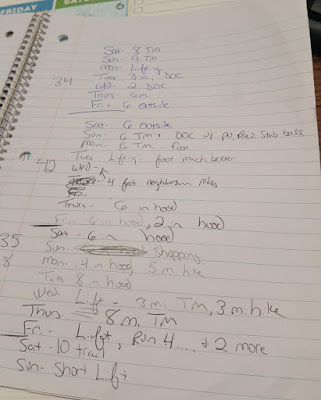 FRIDAY
6
Sat- 8 TM
Sun 9 TM
Mon Lifting
34 Tues 3m, DOC
Wed- 2 DOC
Thurs 6m
Fri- 6 outside
Sat- 6 outside
Sun 6 TM + DOC w/ Slab ball
Mon- 6 TM - foot
Tues Lifting - foot much better
42 Wed-
4 fast neighborhood miles
Thurs- 6 in hood
Fri- 6 in hood, 2 in hood
Sat - 6 in hood
35 Sun- Shopping
8 Mon- 4 in hood, 5 m hike
Tues 8 in hood
Wed Lift - 3 m. TM, 3 m. hike
Thurs 8 m. TM
Fri- Lift, Run 4 .... + 2 more
Sat -10 trail
Sun- Short Lift